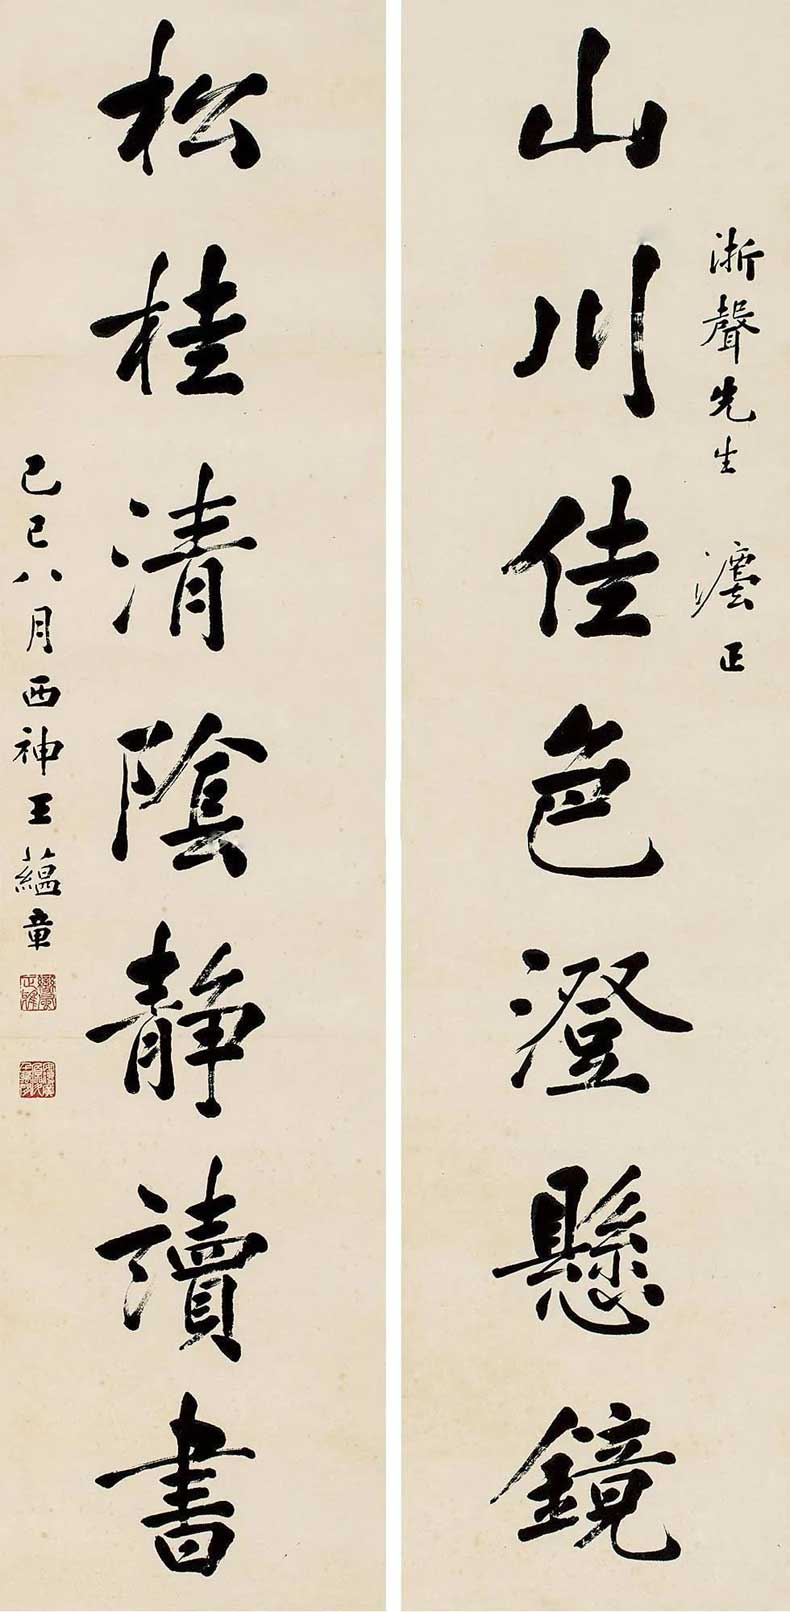 山川佳色澄懸鏡
浙聲先生 灋正
松桂清陰靜讀書
己巳八月西神王蘊章